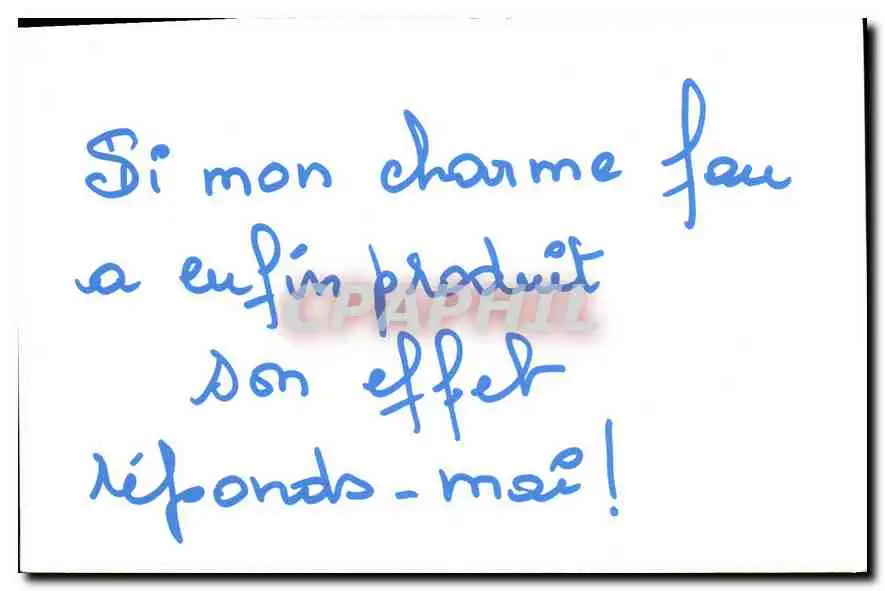 Si mon charme fou
a enfin produit
son effet
réponds-moi!
CPAPHIL